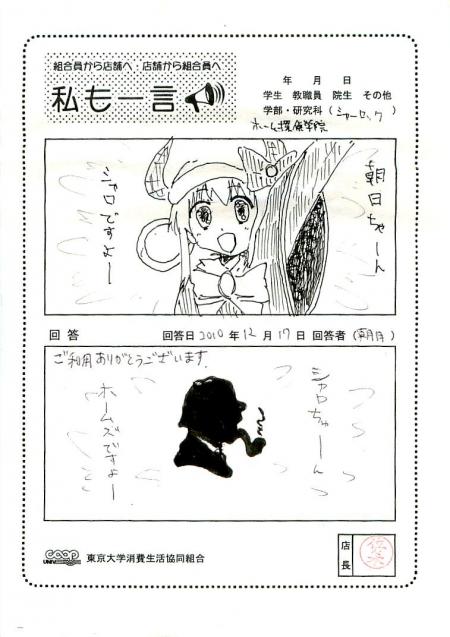 組合員から店舗へ・店舗から組合員へ
私も一言
年 月 日
学生 教職員 院生 その他
学部・研究科(シャーロック
ホームズ探偵学院
朝日ちゃーん
シャロですよー
回答
回答日2010年12月17日 回答者(朝月)
ご利用ありがとうございます.
シャロちゃーん
ホームズですよー
coop
UNIV
東京大学消費生活協同組合
店長